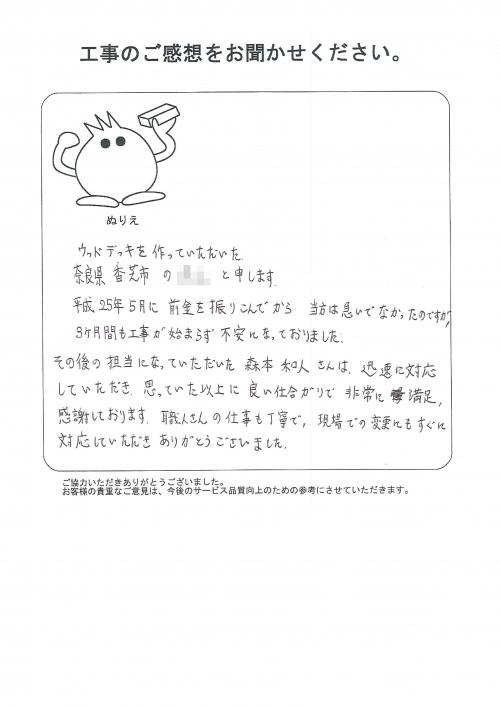 工事のご感想をお聞かせください。
ぬりえ
ウッドデッキを作っていただいた
奈良県 香芝市 の と申します.
平成25年5月に 前金を振りこんでから 当方は急いでなかったのですが,
3ヶ月間も工事が始まらず 不安になっておりました.
その後の担当になっていただいた 森本和人さんは、迅速に対応
していただき 思っていた以上に 良い仕合がりで 非常に 満足,
感謝しております. 職人さんの仕事も丁寧で, 現場での変更にもすぐに
対応していただき ありがとうございました.
ご協力いただきありがとうございました。
お客様の貴重なご意見は、今後のサービス品質向上のための参考にさせていただきます。